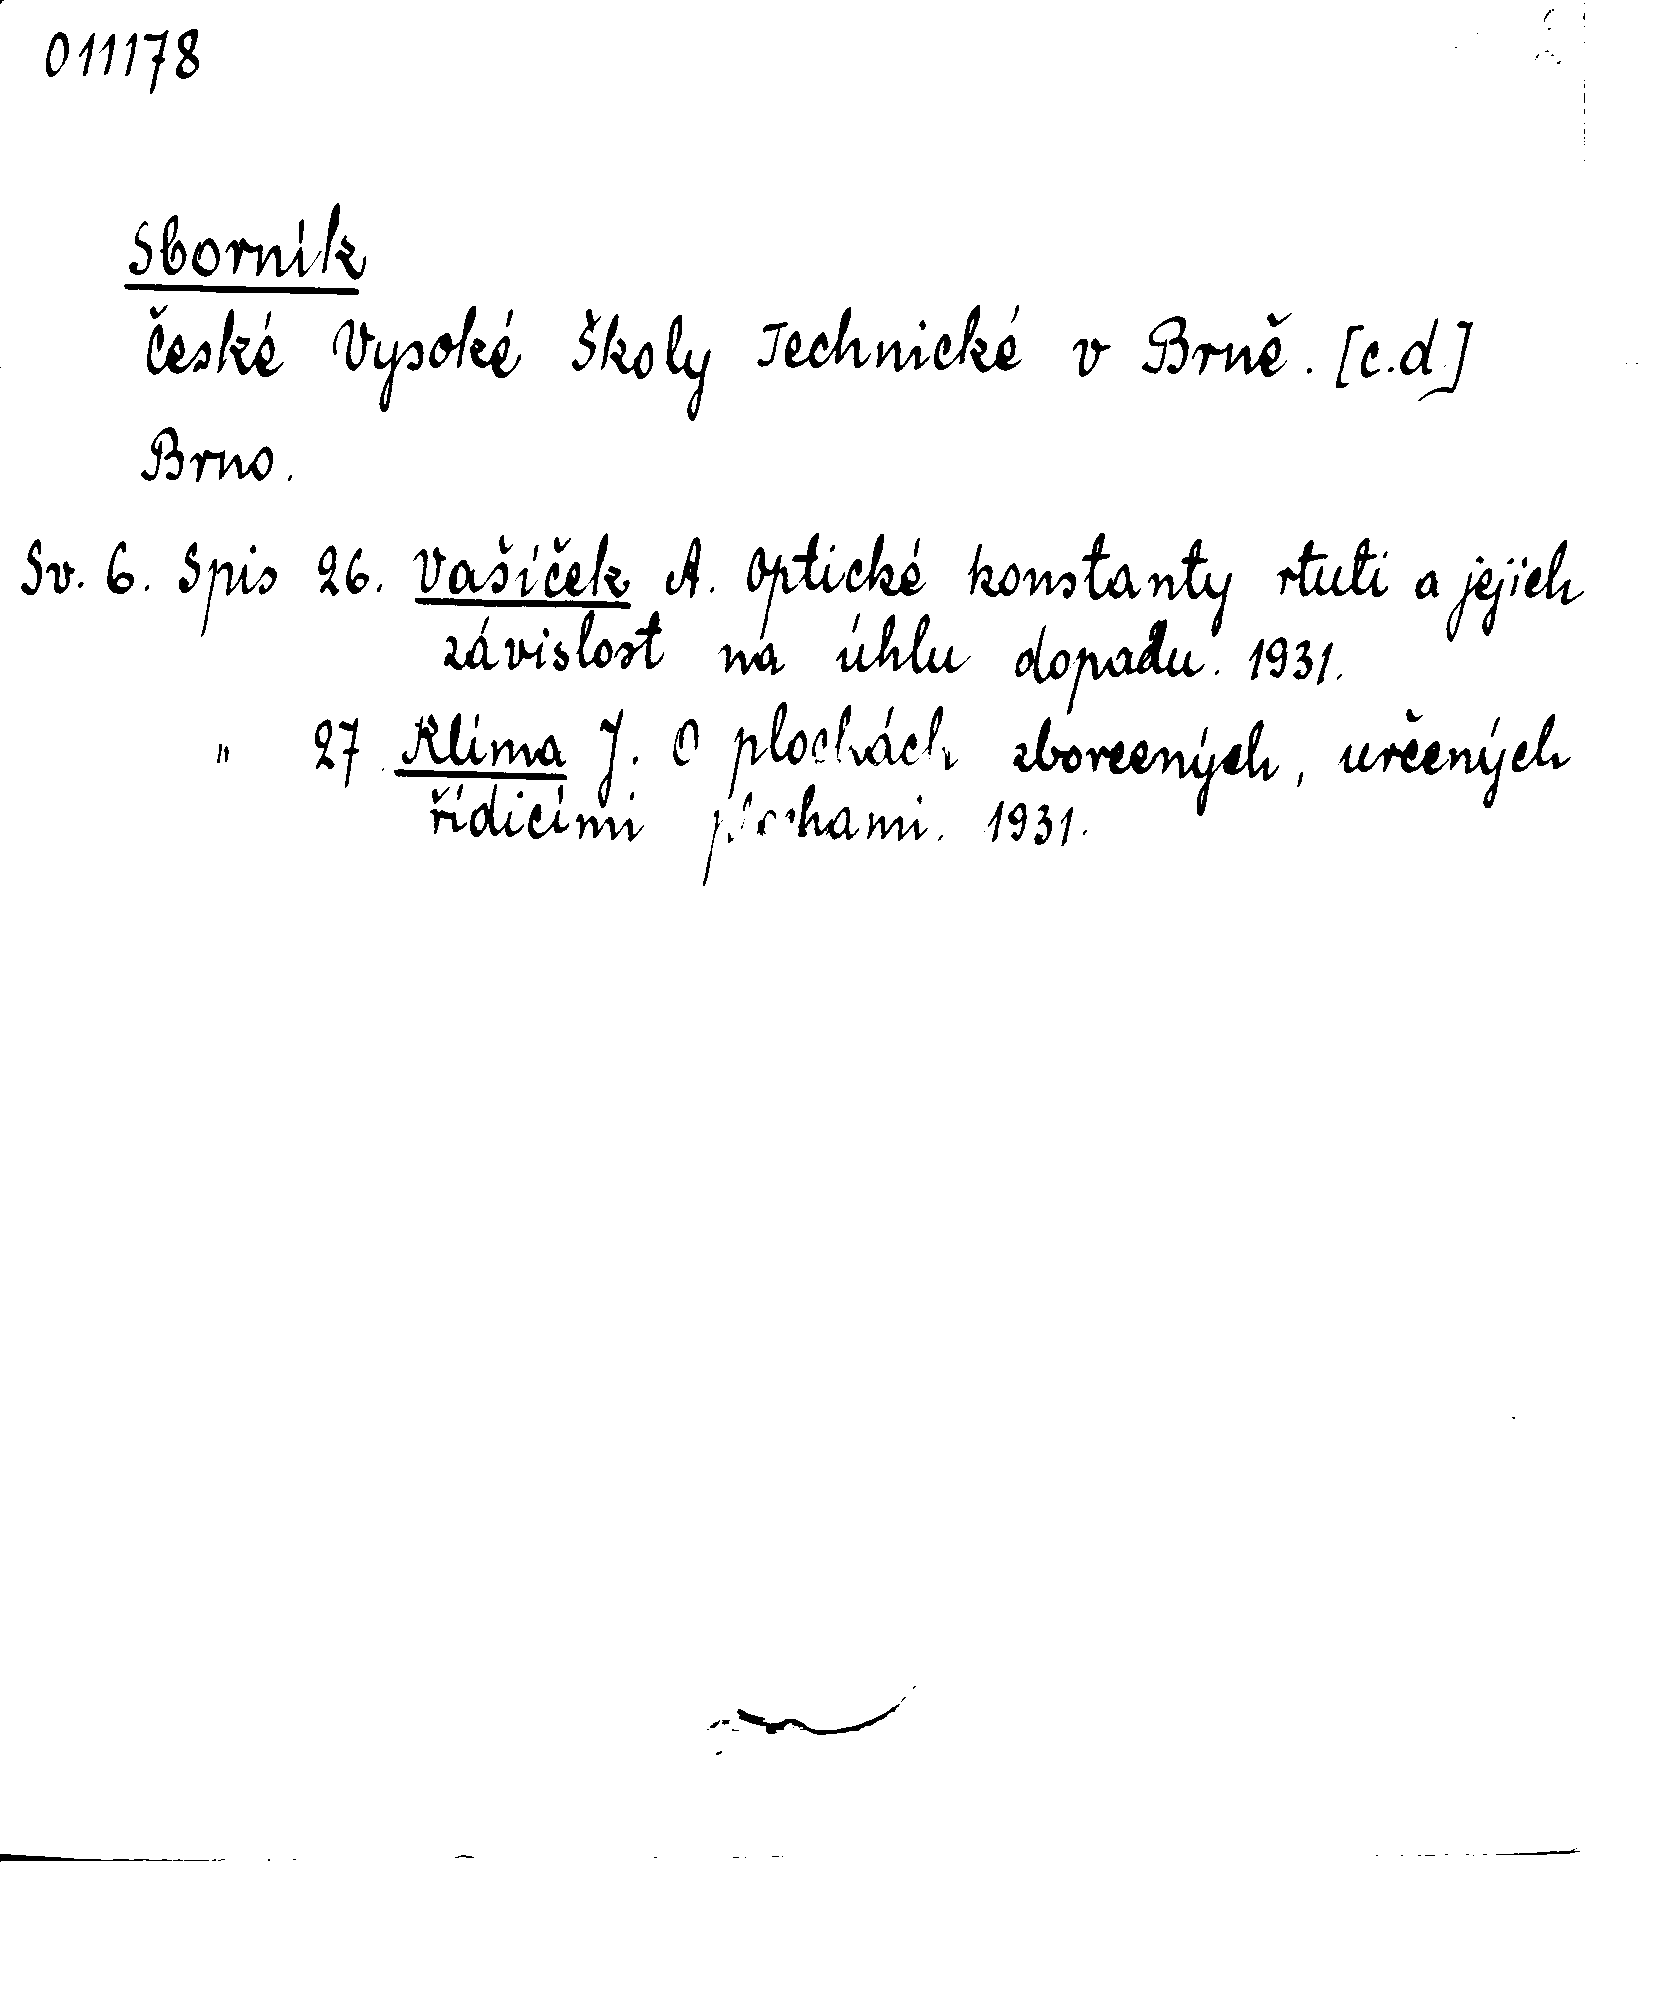 011178
Sborník
České Vysoké Školy Technické v Brně. [c.d.]
Brno.
Sv. 6. Spis 26. Vašíček A. Optické konstanty rtuti a jejich
závislost na úhlu dopadu. 1931.
" 27 Klíma J. O plochách zborcených, určených
řídicími plochami. 1931.